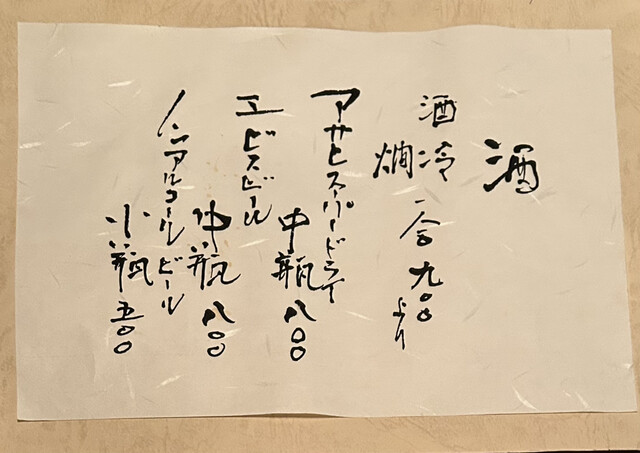 酒
酒 冷 燗 一合 九〇〇 より
アサヒスーパードライ 中瓶 八〇〇
エビスビール 中瓶 八〇〇
ノンアルコールビール 小瓶 五〇〇